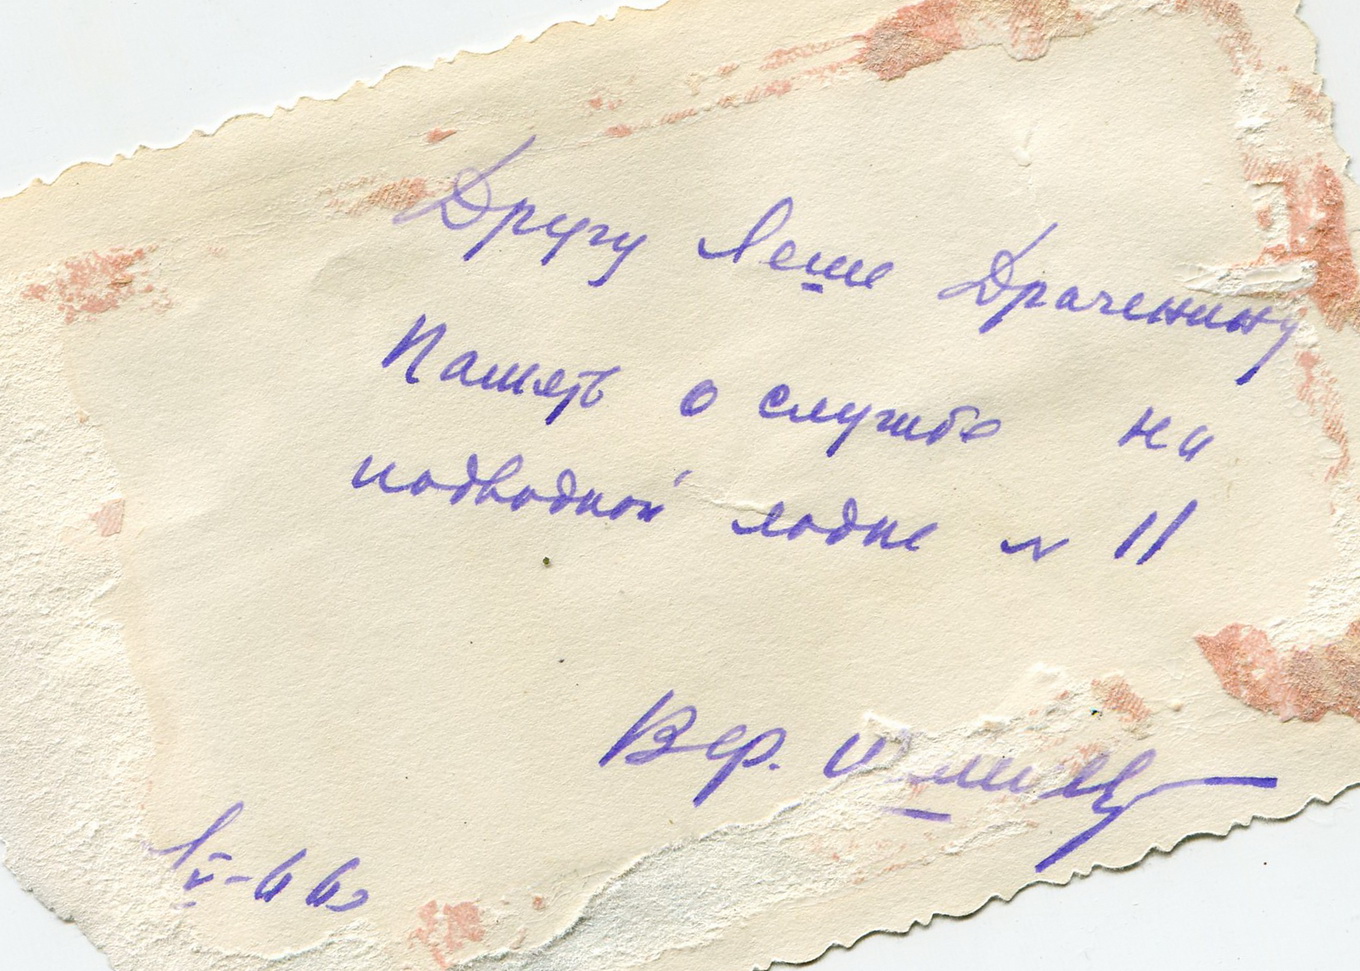 Другу Леше Драченину
Память о службе на
подводной лодке N 11
Вер.
1/V-66